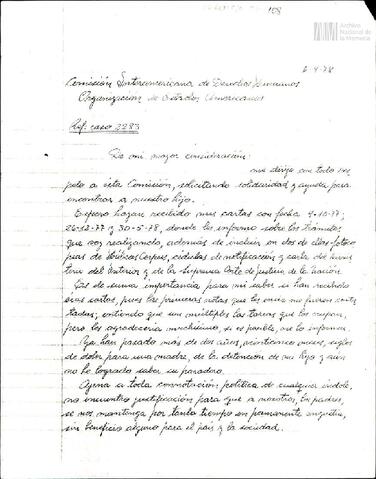 108
Archivo
Nacional de
la Memoria
6-4-78
Comisión Interamericana de Derechos Humanos
Organización de Estados Americanos
Ref: caso 2283
De mi mayor consideración:
me dirijo con todo res
peto a esta Comisión, solicitando solidaridad y ayuda para
encontrar a nuestro hijo.
Espero hayan recibido mis cartas con fecha 4-10-77;
26-12-77 y 30-5-78, donde les informo sobre los trámites
que voy realizando, además de incluir en dos de ellas fotoco
pias de Habeas Corpus, cédulas de notificación y carta del Minis
terio del Interior y de la Suprema Corte de Justicia de la Nación.
Es de suma importancia para mi saber si han recibido
esas cartas, pues las primeras notas que les envié me fueron contes
tadas; entiendo que son múltiples las tareas que los ocupan,
pero les agradecería muchísimo, si es posible, me lo informen.
Ya han pasado más de dos años, veinticinco meses, siglos
de dolor para una madre, de la detención de mi hijo y aún
no he logrado saber su paradero.
Ajena a toda connotación política de cualquier índole,
no encuentro justificación para que a nosotros, los padres,
se nos mantenga por tanto tiempo en permanente angustia,
sin beneficio alguno para el país y la sociedad.